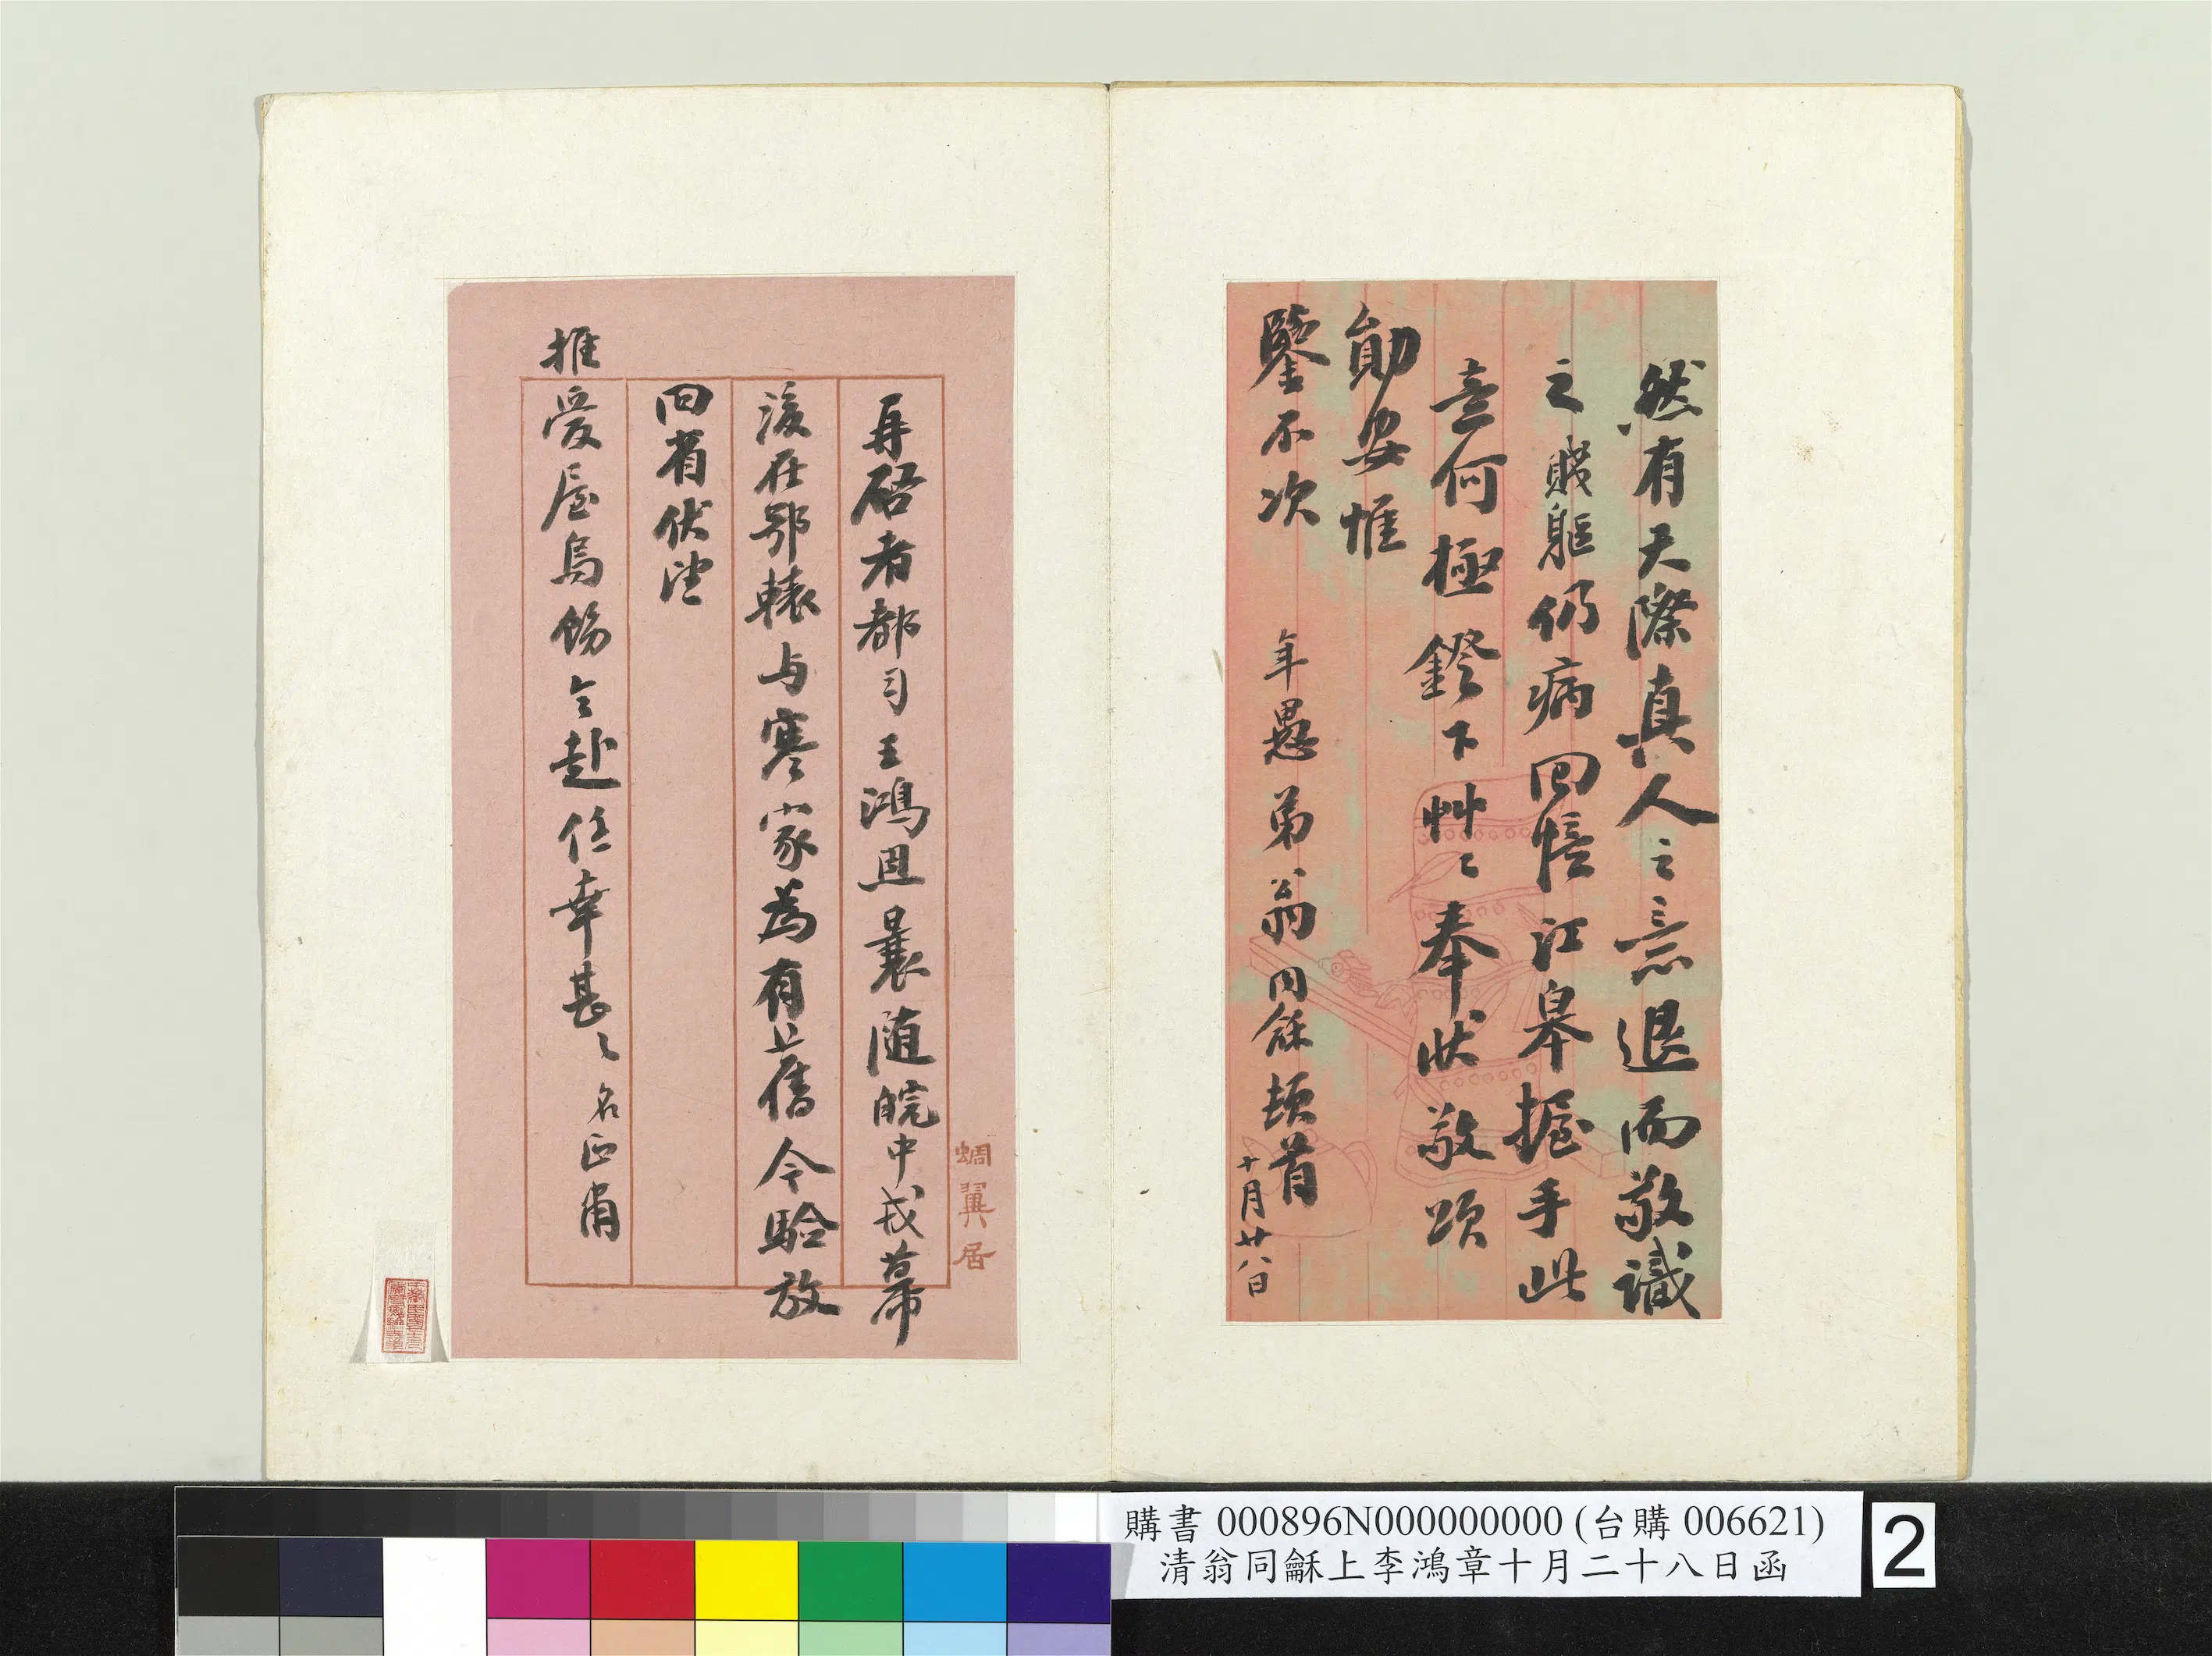 然有天際真人之意退而敬識
之賤軀仍病回憶江皋握手此
意何極鐙下艸艸奉狀敬頌
勛安惟
鑒不次
年愚弟翁同龢頓首
十月廿八日
再啓者都司王鴻恩曩随皖中戎幕
後在鄂轅与寒家為有舊今驗放
回省伏望
推愛屋烏飭令赴任幸甚幸甚名正肅
蜩翼居
購書 000896N000000000 (台購 006621)
清翁同龢上李鴻章十月二十八日函
2